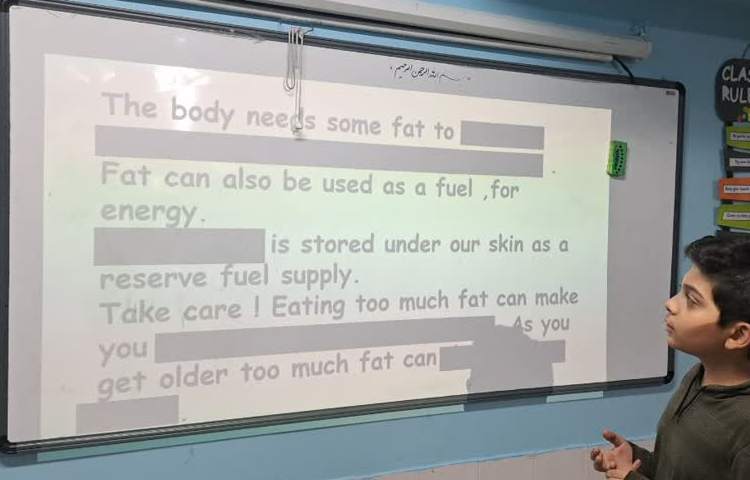 بسم الله الرحمن الرحيم
The body needs some fat to
Fat can also be used as a fuel ,for
energy.
is stored under our skin as a
reserve fuel supply.
Take care ! Eating too much fat can make
you
As you
get older too much fat can
CLA
RUL